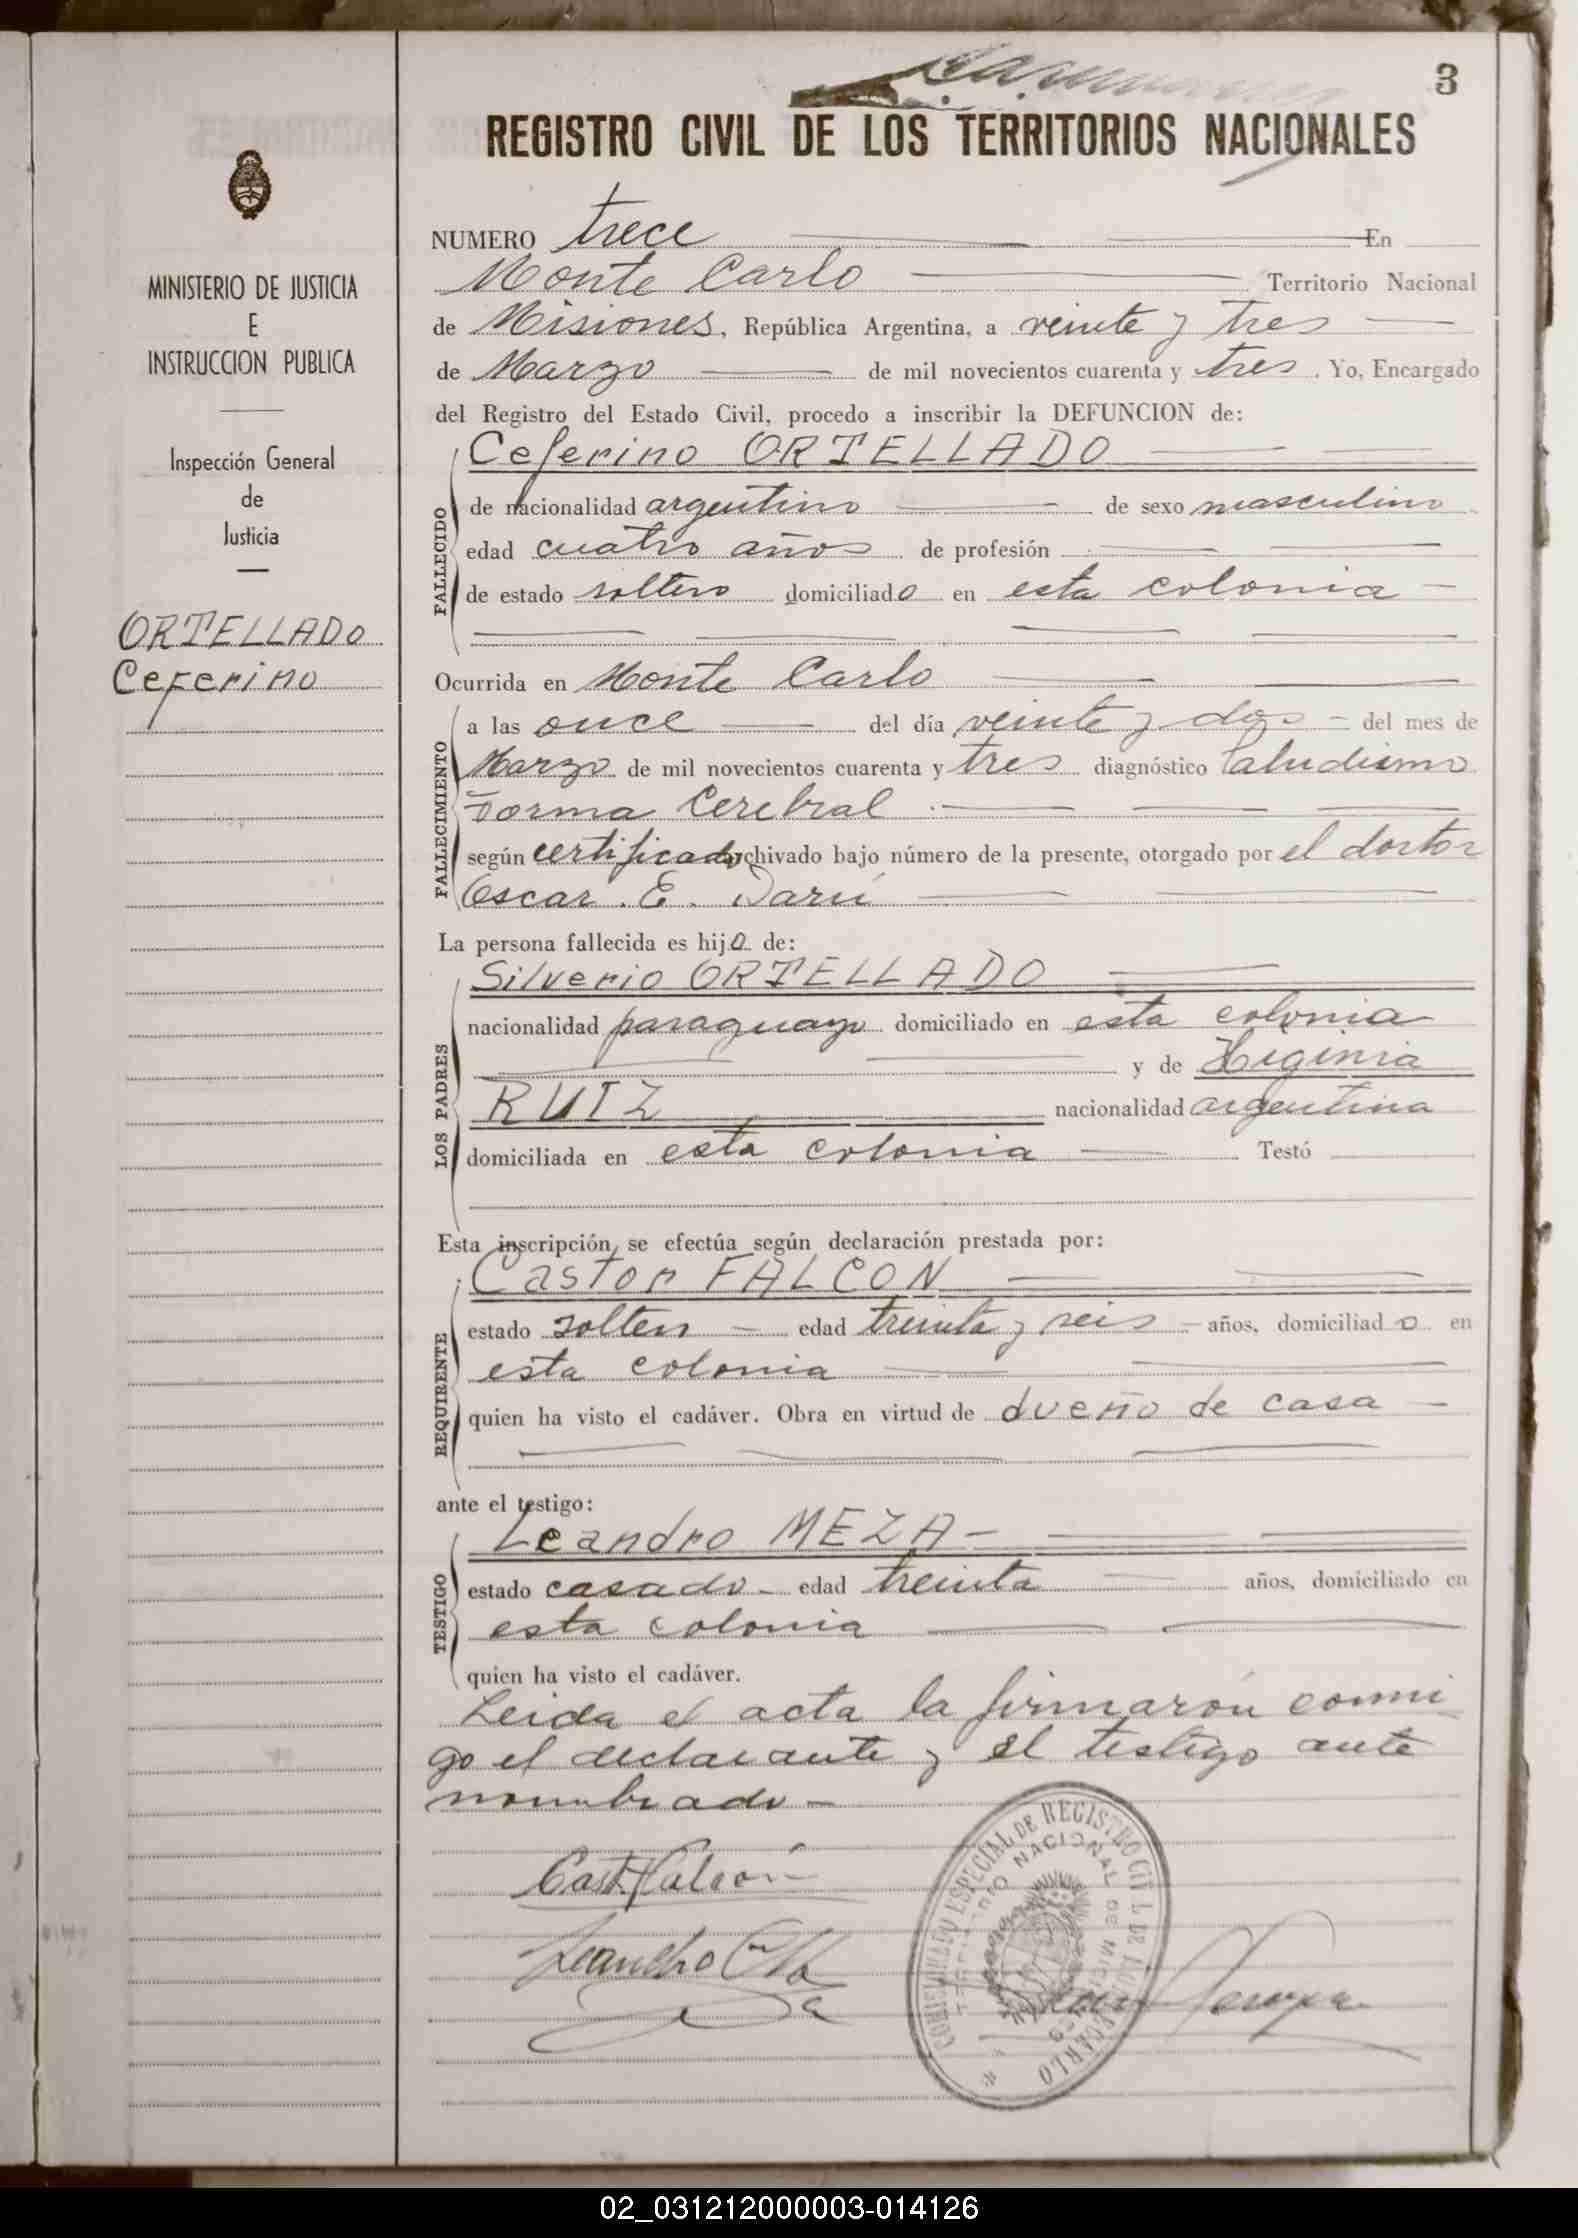 3
REGISTRO CIVIL DE LOS TERRITORIOS NACIONALES
MINISTERIO DE JUSTICIA
E
INSTRUCCION PUBLICA
Inspección General
de
Justicia
ORTELLADO
Ceferino
NUMERO trece En
Monte Carlo Territorio Nacional
de Misiones, República Argentina, a veinte y tres
de Marzo de mil novecientos cuarenta y tres. Yo, Encargado
del Registro del Estado Civil, procedo a inscribir la DEFUNCION de:
Ceferino ORTELLADO
FALLECIDO
de nacionalidad argentino de sexo masculino
edad cuatro años de profesión
de estado soltero domiciliado en esta colonia
Ocurrida en Monte Carlo
FALLECIMIENTO
a las once del día veinte y dos del mes de
Marzo de mil novecientos cuarenta y tres diagnóstico Paludismo
Forma Cerebral
según certificado archivado bajo número de la presente, otorgado por el doctor
Oscar E. Darú
La persona fallecida es hijo de:
LOS PADRES
Silverio ORTELLADO
nacionalidad paraguayo domiciliado en esta colonia
y de Higinia
RUIZ nacionalidad argentina
domiciliada en esta colonia Testó
Esta inscripción se efectúa según declaración prestada por:
REQUIRENTE
Castor FALCON
estado soltero edad treinta y seis años, domiciliado en
esta colonia
quien ha visto el cadáver. Obra en virtud de dueño de casa
ante el testigo:
TESTIGO
Leandro MEZA
estado casado edad treinta años, domiciliado en
esta colonia
quien ha visto el cadáver.
Leida el acta la firmarón conmi
go el declarante y el testigo ante
nombrado
Cast. Falcón
Leandro
COMISARIADO ESPECIAL DE REGISTRO CIVIL DE MONTECARLO
TERRITORIO NACIONAL DE MISIONES
02_031212000003-014126